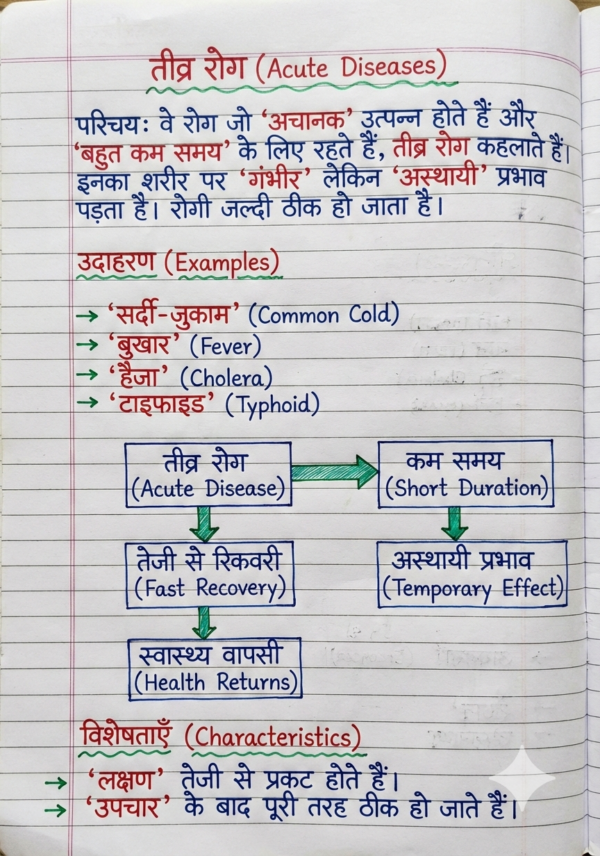 तीव्र रोग (Acute Diseases)
परिचय: वे रोग जो 'अचानक' उत्पन्न होते हैं और
'बहुत कम समय' के लिए रहते हैं, तीव्र रोग कहलाते हैं।
इनका शरीर पर 'गंभीर' लेकिन 'अस्थायी' प्रभाव
पड़ता है। रोगी जल्दी ठीक हो जाता है।
उदाहरण (Examples)
→ 'सर्दी-जुकाम' (Common Cold)
→ 'बुखार' (Fever)
→ 'हैजा' (Cholera)
→ 'टाइफाइड' (Typhoid)
तीव्र रोग
(Acute Disease)
कम समय
(Short Duration)
तेजी से रिकवरी
(Fast Recovery)
अस्थायी प्रभाव
(Temporary Effect)
स्वास्थ्य वापसी
(Health Returns)
विशेषताएँ (Characteristics)
→ 'लक्षण' तेजी से प्रकट होते हैं।
→ 'उपचार' के बाद पूरी तरह ठीक हो जाते हैं।